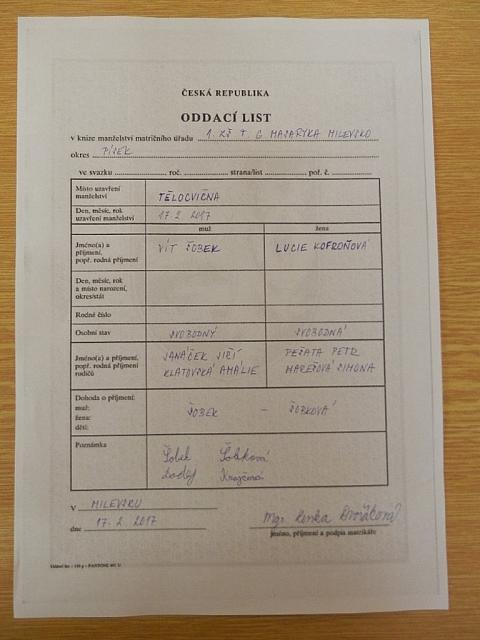 ČESKÁ REPUBLIKA
ODDACÍ LIST
v knize manželství matričního úřadu 1. ZŠ T. G MASARYKA MILEVSKO
okres PÍSEK
ve svazku roč. strana/list poř. č.
Místo uzavření manželství TĚLOCVIČNA
Den, měsíc, rok uzavření manželství 17. 2. 2017
muž žena
Jméno(a) a příjmení, popř. rodná příjmení VÍT ŠOBEK LUCIE KOFROŇOVÁ
Den, měsíc, rok a místo narození, okres/stát
Rodné číslo
Osobní stav SVOBODNÝ SVOBODNÁ
Jméno(a) a příjmení, popř. rodná příjmení rodičů
JANÁČEK JIŘÍ PEŠATA PETR
KLATOVSKÁ AMÁLIE MAREŠOVÁ SIMONA
Dohoda o příjmení:
muž:
žena:
dětí:
ŠOBEK – ŠOBKOVÁ
Poznámka
Šobek Šobková
Krejčová
V MILEVSKU
dne 17. 2. 2017
Mgr. Lenka Dvořáková
jméno, příjmení a podpis matrikáře